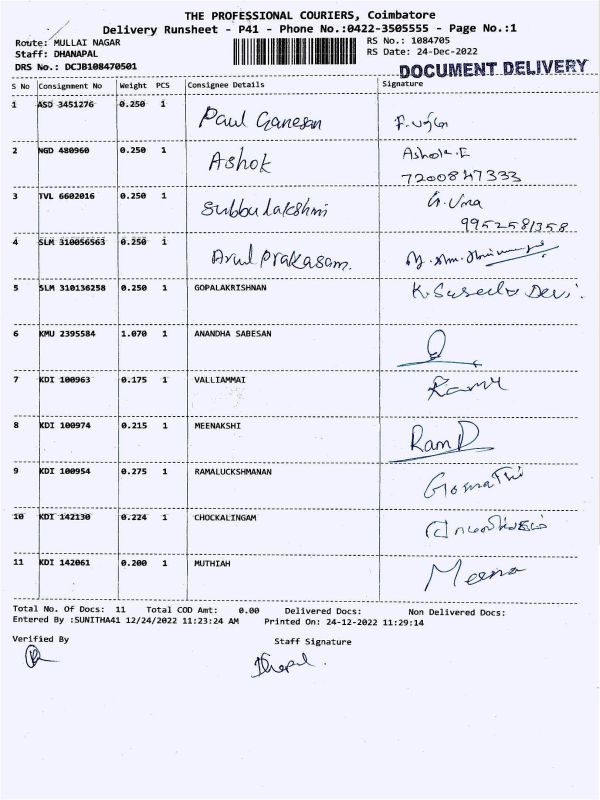 THE PROFESSIONAL COURIERS, Coimbatore
Delivery Runsheet - P41 - Phone No.:0422-3505555 - Page No.:1
Route: MULLAI NAGAR RS No.: 1084705
Staff: DHANAPAL RS Date: 24-Dec-2022
DRS No.: DCJB108470501 DOCUMENT DELIVERY
S No Consignment No Weight PCS Consignee Details Signature
1 ASD 3451276 0.250 1 Paul Ganesan
2 NGD 480960 0.250 1 Ashok Ashok.E
7200847333
3 TVL 6602016 0.250 1 Subbulakshmi G. Uma
9952581358
4 SLM 310056563 0.250 1 Arul Prakasam.
5 SLM 310136258 0.250 1 GOPALAKRISHNAN K. Suseela Devi.
6 KMU 2395584 1.070 1 ANANDHA SABESAN
7 KDI 100963 0.175 1 VALLIAMMAI
8 KDI 100974 0.215 1 MEENAKSHI Ram D
9 KDI 100954 0.275 1 RAMALUCKSHMANAN Gomathi
10 KDI 142130 0.224 1 CHOCKALINGAM
11 KDI 142061 0.200 1 MUTHIAH Meena
Total No. Of Docs: 11 Total COD Amt: 0.00 Delivered Docs: Non Delivered Docs:
Entered By :SUNITHA41 12/24/2022 11:23:24 AM Printed On: 24-12-2022 11:29:14
Verified By Staff Signature